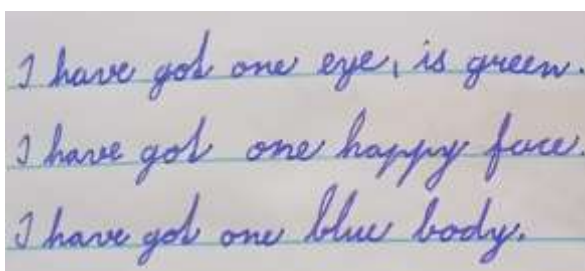 I have got one eye, is green.
I have got one happy face.
I have got one blue body.